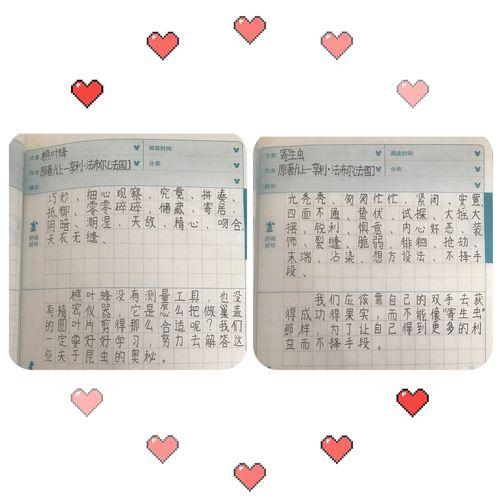 文章: 樵叶蜂
阅读时间:
作者 原著/让-亨利·法布尔[法国]
分类:
摘自:
巧妙、细心观察、究竟、拼凑、
抵御、零零碎碎、储藏、寄居、
阴暗、潮湿、天敌、精心、吻合、
天衣无缝、
好词
好句
樵叶蜂没有测量工具,也没
有精宏仪器,它是怎么把做巢
的圆叶片剪得那么合适呢?盖我们
一定要好好学习,努力解答这
些夫子昆虫的奥秘。
文章: 寄生虫
阅读时间:
作者 原著/让-亨利·法布尔[法国]
分类:
摘自:
光秃秃、匆匆忙忙、紧闭、安置、
四面不通、蛰伏、试探、大摇大
摆、锐利、惧意、内心奸恶、装
饰、裂缝、脆弱、徘徊、抢劫、
末端、沾染、想方设法、不择手
段、
好词
好句
我们应该靠自己的双手去获
得成功果实,而不能像"寄生虫"
那样,为了让自己得到更多的利
益而不择手段。